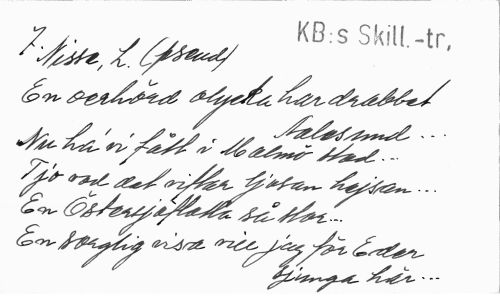 KB:s Skill.-tr,
7.
Nisse, L. (pseud)
En oerhörd olycka har drabbat
Aalesund...
Nu ha' vi fått i Malmö stad...
Tjo vad det viftar tjosan hejsan...
En Östersjöflotta så stor...
En sorglig visa vill jag för Eder
sjunga här...